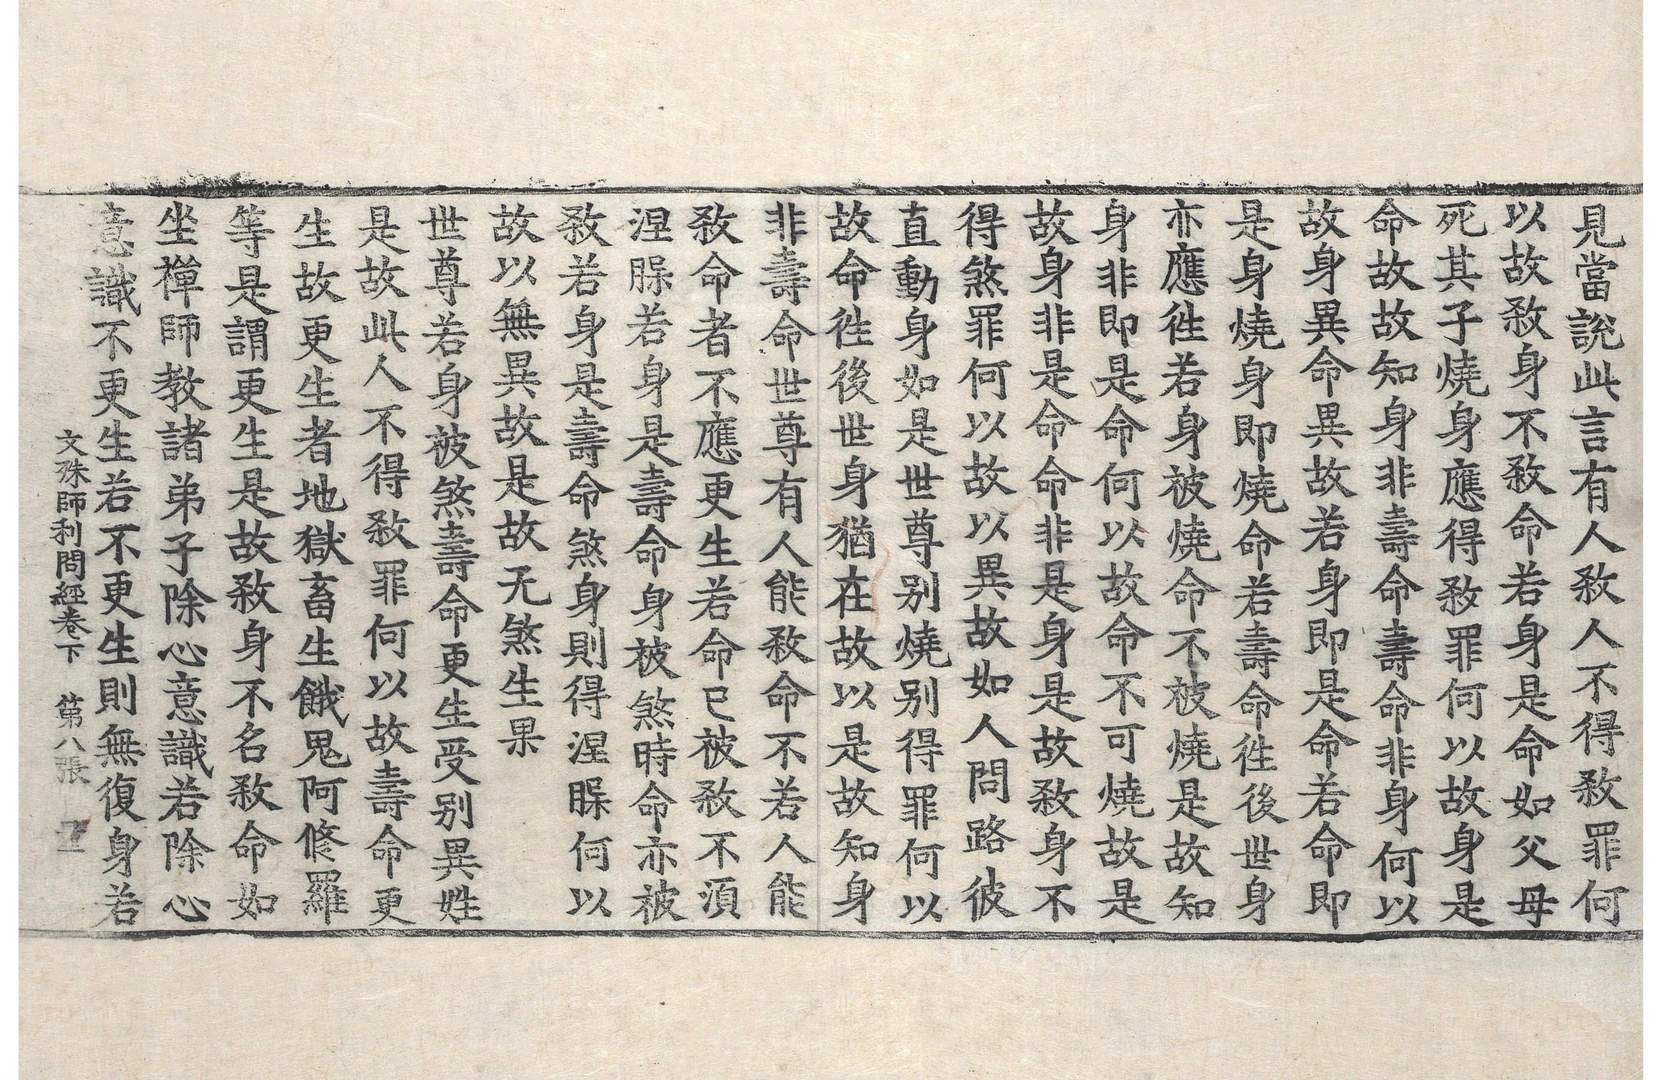 見當說此言有人敎人不得敎罪何
以故敎身不敎命若身是命如父母
死其子燒身應得敎罪何以故身是
命故故知身非壽命壽命非身何以
故身異命異故若身即是命若命即
是身燒身即燒命若壽命徃後世身
亦應徃若身被燒命不被燒是故知
身非即是命何以故命不可燒故是
故身非是命命非是身是故敎身不
得煞罪何以故以異故如人問路彼
直動身如是世尊别燒别得罪何以
故命徃後世身猶在故以是故知身
非壽命世尊有人能敎命不若人能
敎命者不應更生若命已被敎不湏
涅𣵀若身是壽命身被煞時命亦被
敎若身是壽命煞身則得涅𣵀何以
故以無異故是故无煞生果
世尊若身被煞壽命更生受别異姓
是故此人不得敎罪何以故壽命更
生故更生者地獄畜生餓鬼阿修羅
等是謂更生是故敎身不名敎命如
坐禪師教諸弟子除心意識若除心
意識不更生若不更生則無復身若
文殊師利問經卷下 第八張